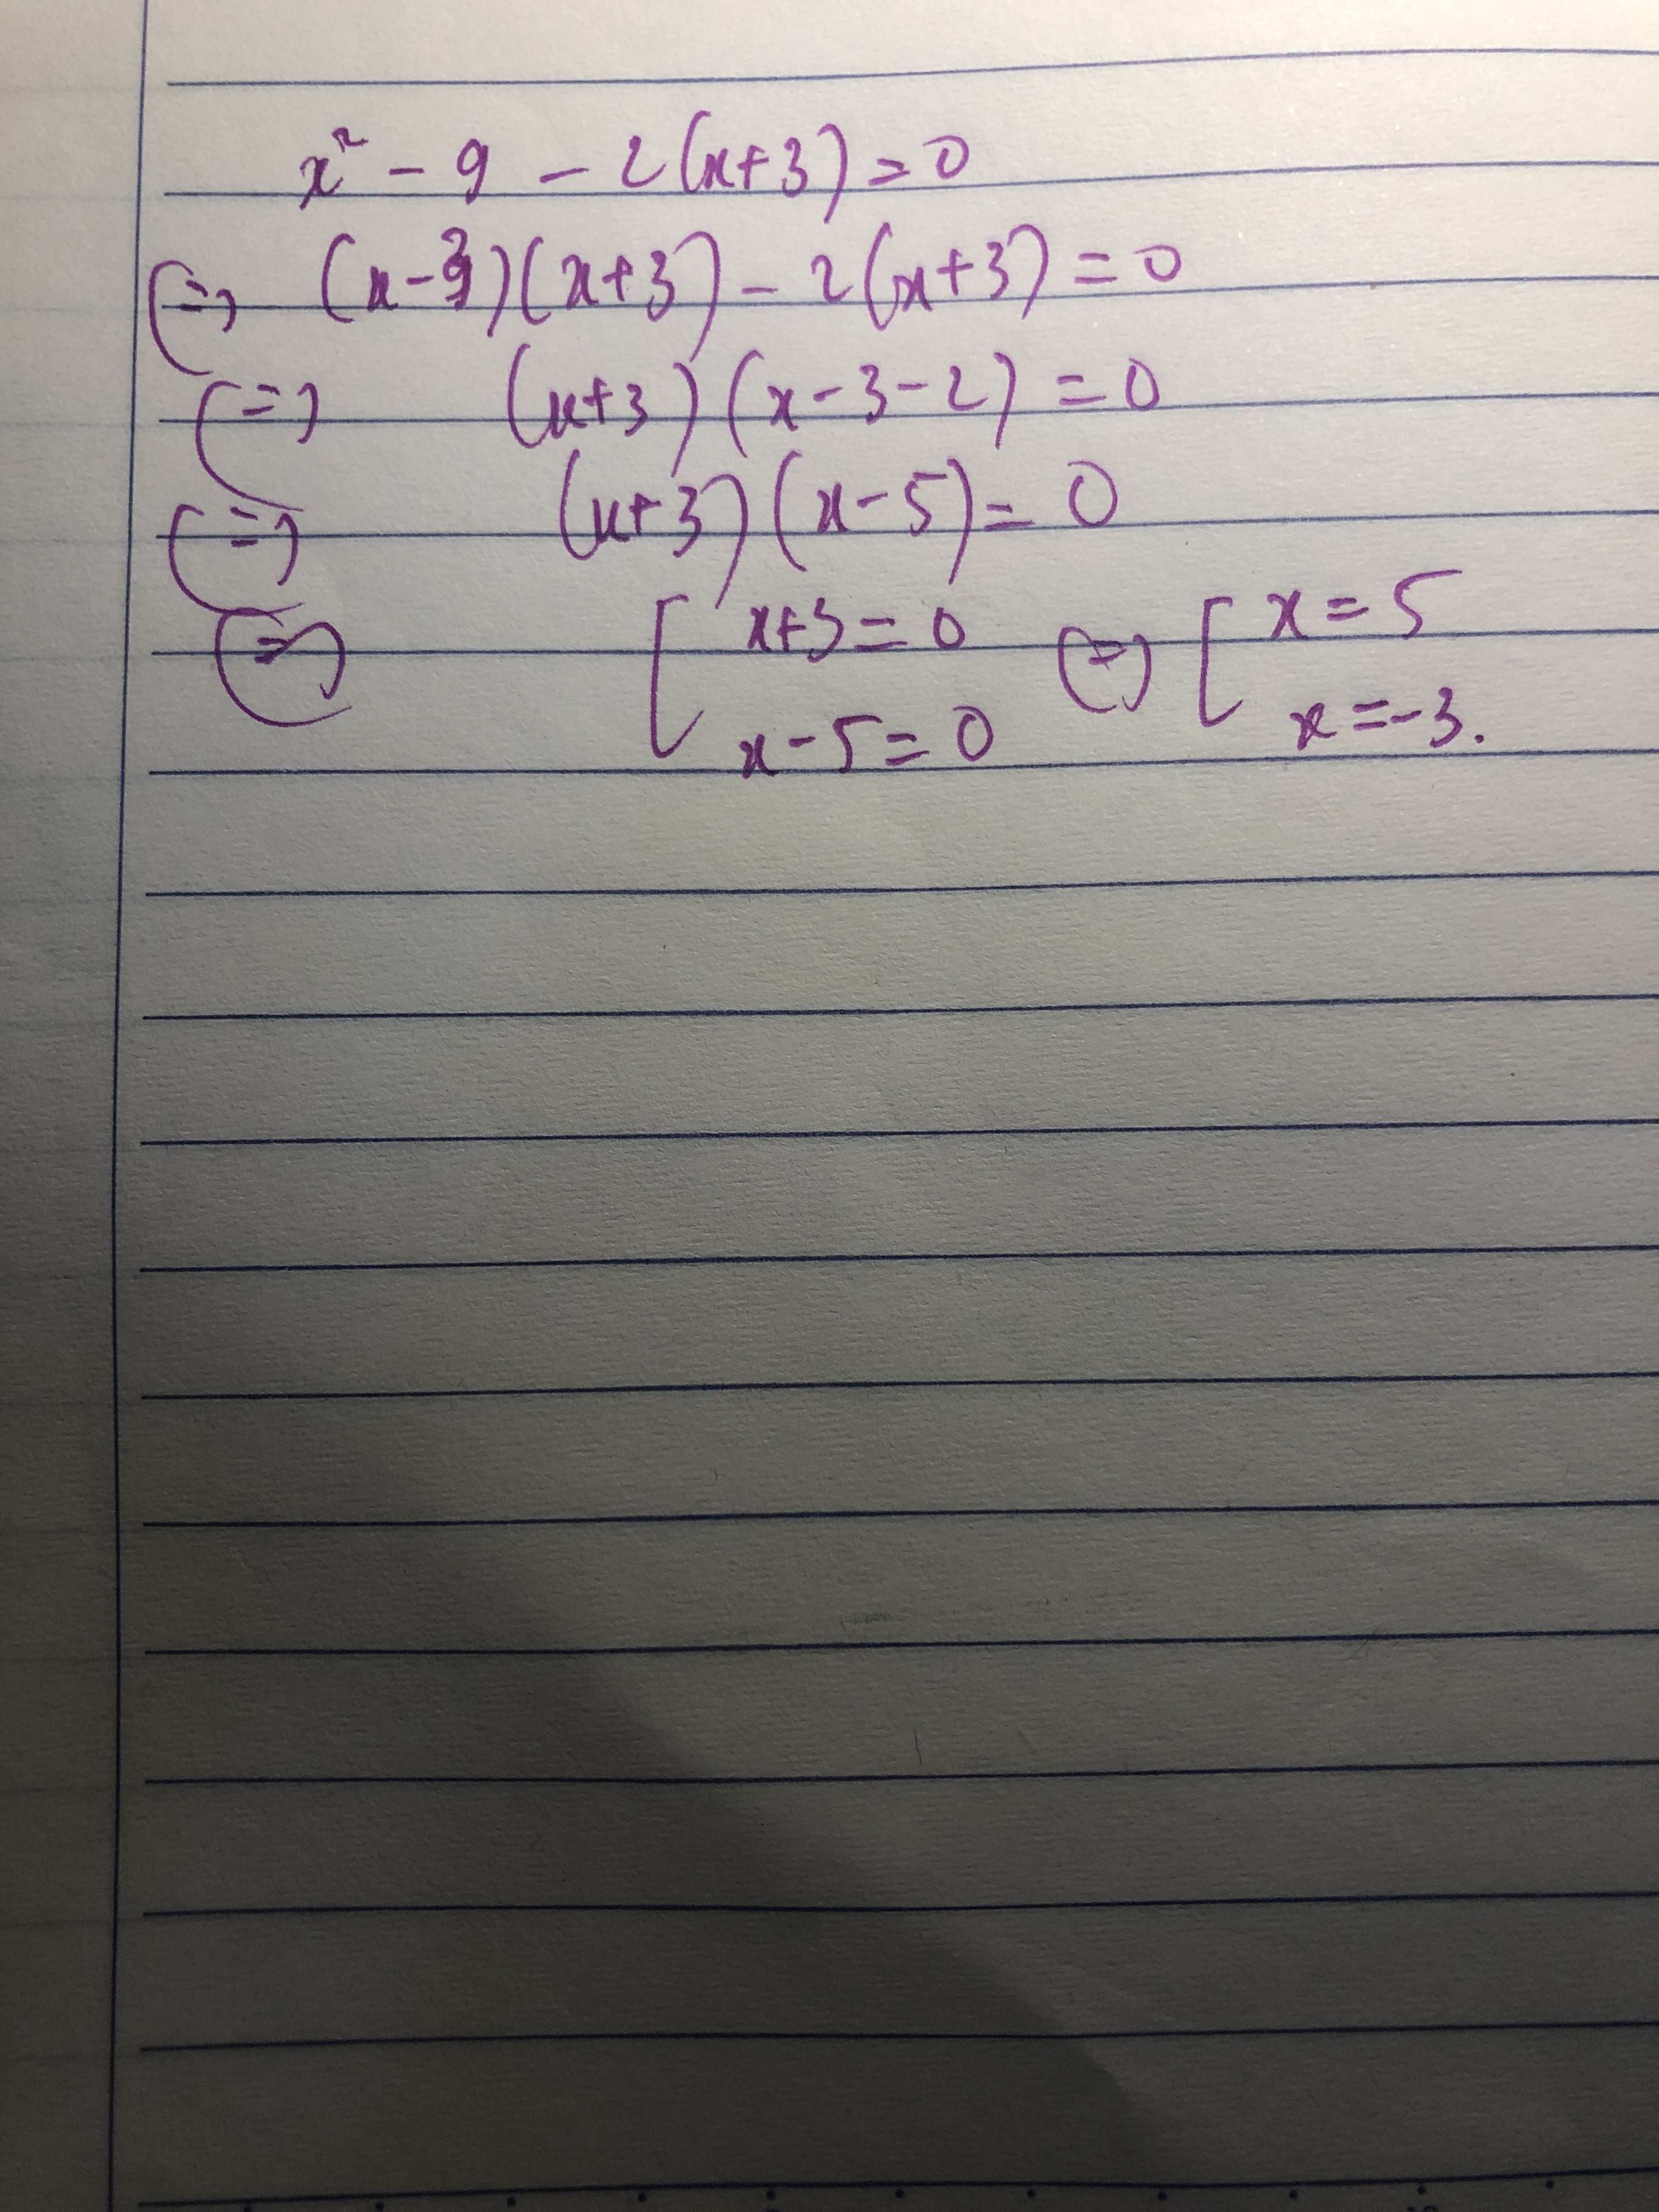 x² - 9 - 2(x+3) = 0
(=) (x-3)(x+3) - 2(x+3) = 0
(=) (x+3)(x-3-2) = 0
(=) (x+3)(x-5) = 0
(=) [ x+3 = 0 (=) [ x = 5
x-5 = 0 x = -3.